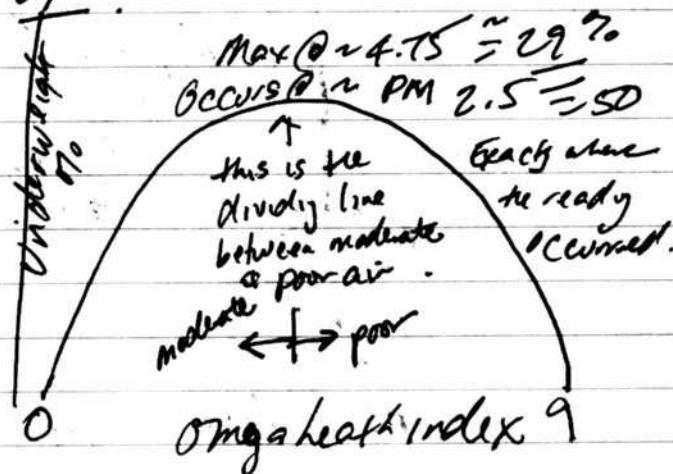 Underweight
%
Max @ ~ 4.75 ≅ 29%
Occurs @ ~ PM 2.5 ≅ 50
↑
this is the
dividing line
between moderate
& poor air.
Exactly where
the ready
occurred.
moderate ↔ poor
0
Omega heath index
9